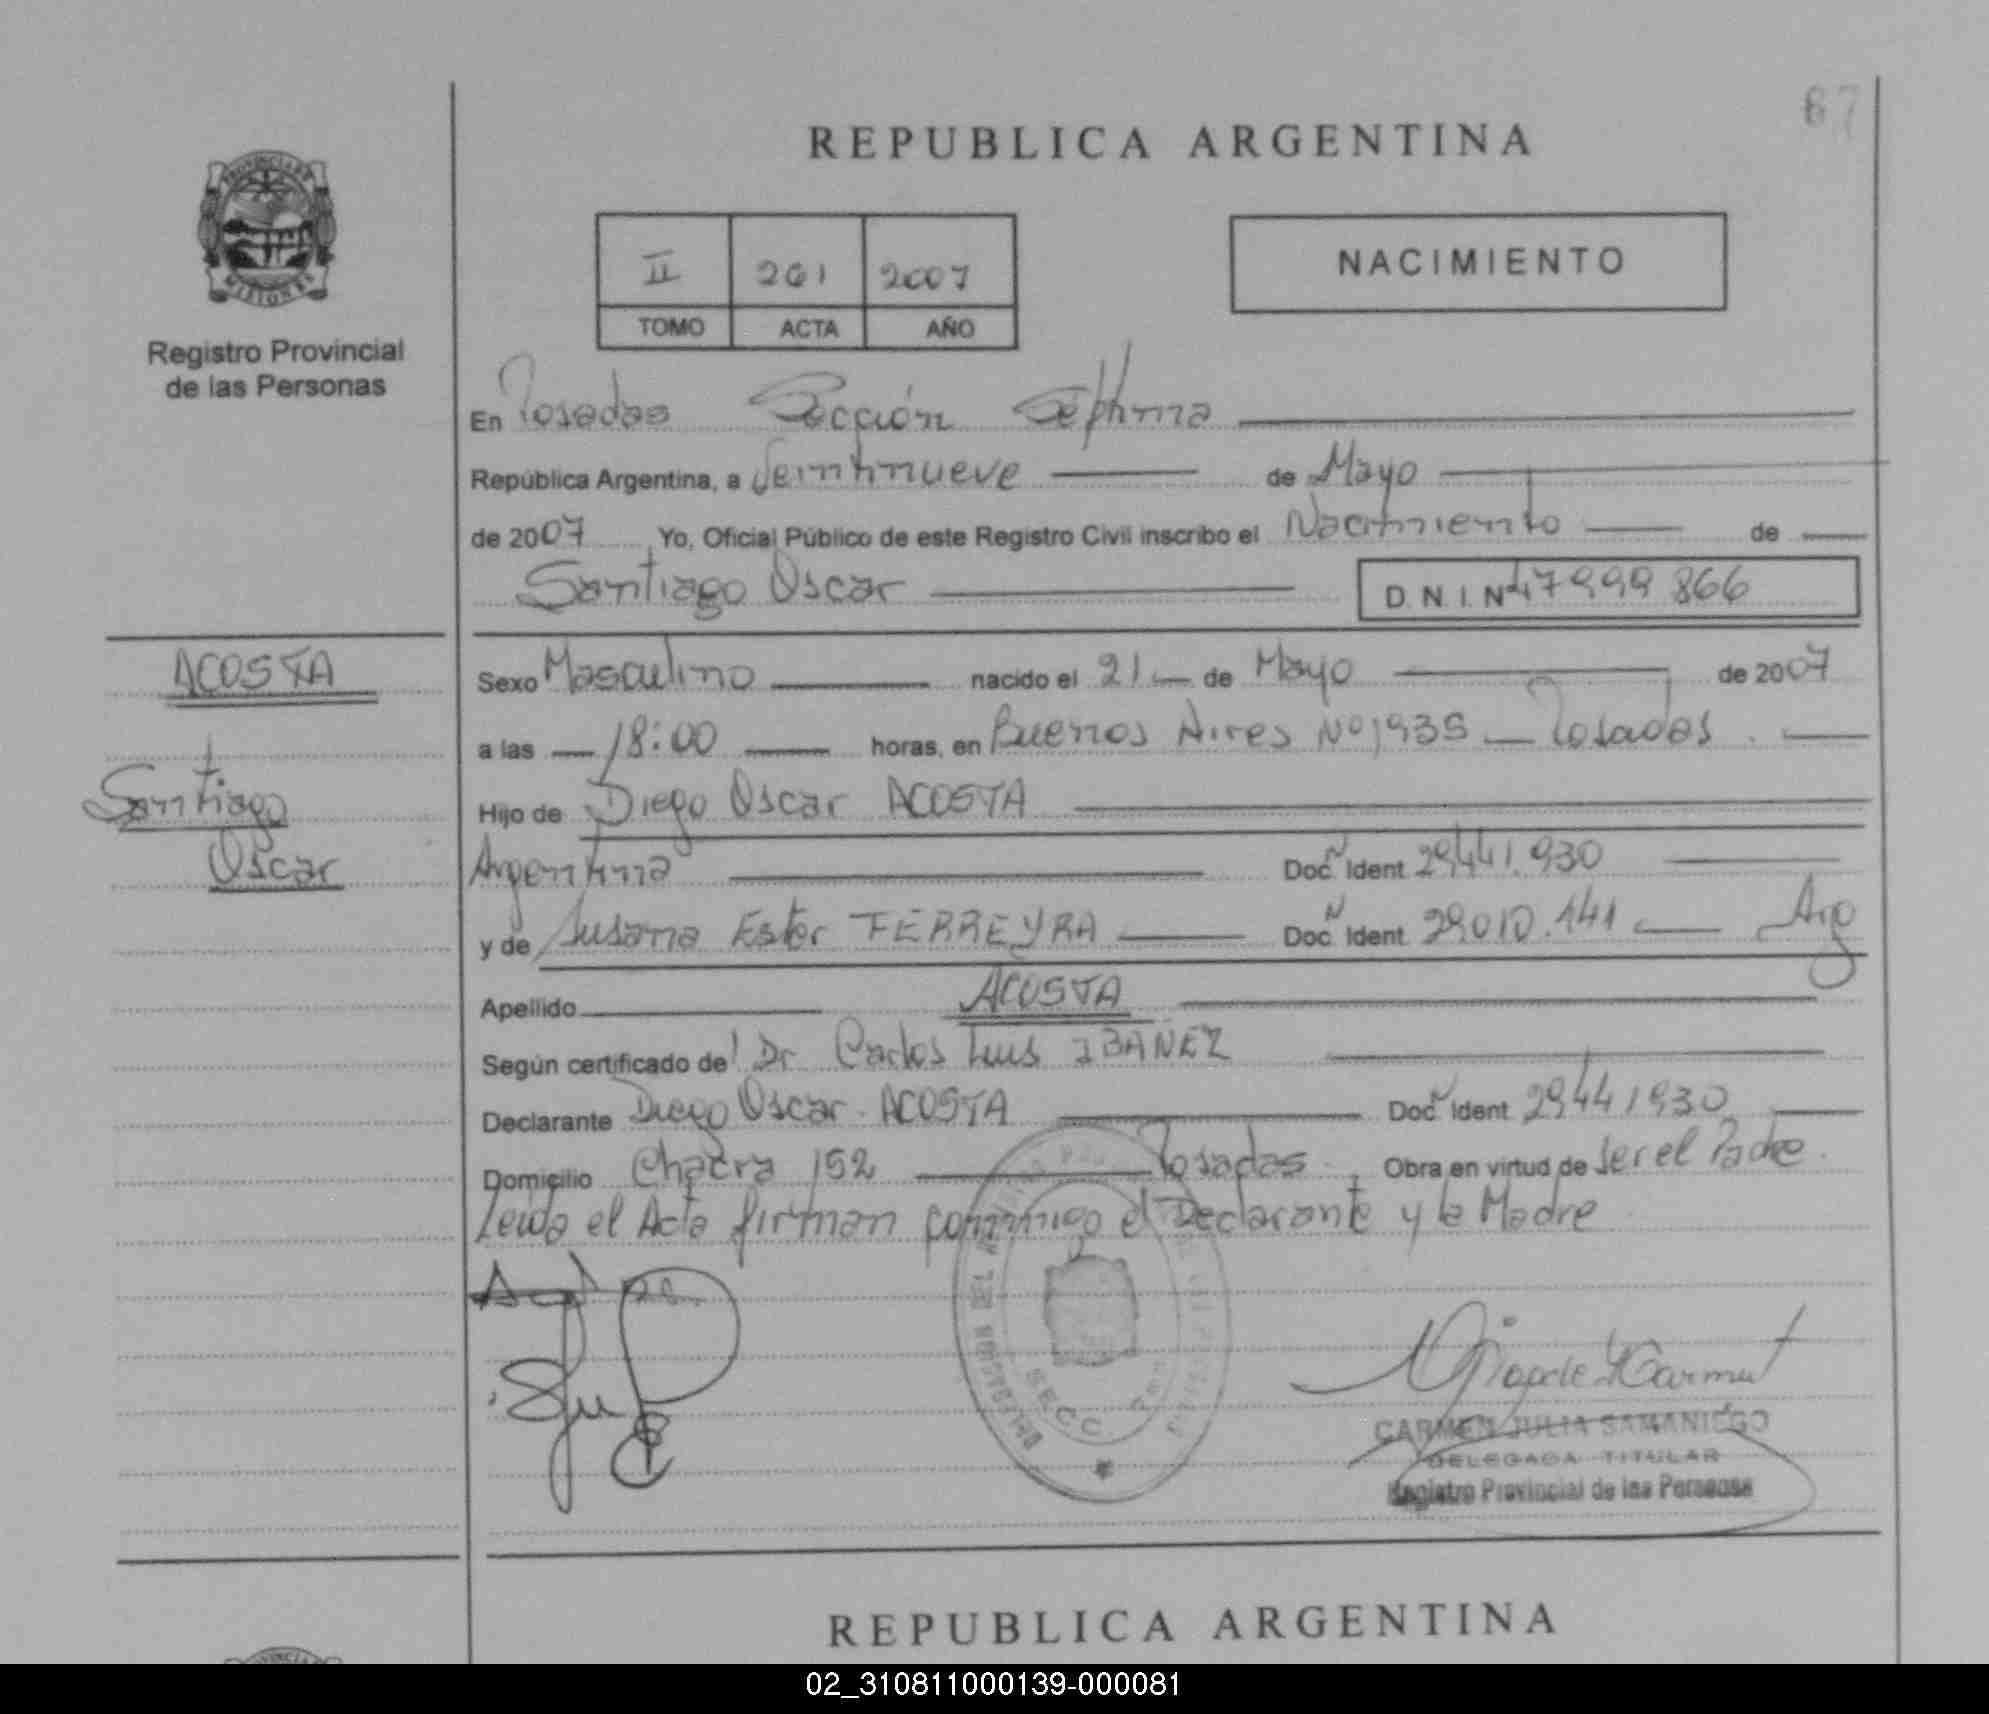 87
REPUBLICA ARGENTINA
PROVINCIA DE
MISIONES
Registro Provincial
de las Personas
II 261 2007
TOMO ACTA AÑO
NACIMIENTO
En Posadas Sección Séptima
República Argentina, a Veintinueve de Mayo
de 2007 Yo, Oficial Público de este Registro Civil inscribo el Nacimiento de
Santiago Oscar D.N.I. Nº 47999866
ACOSTA
Santiago
Oscar
Sexo Masculino nacido el 21 de Mayo de 2007
a las 18:00 horas, en Buenos Aires Nº 1935 Posadas.
Hijo de Diego Oscar ACOSTA
Argentina Doc. N Ident 29441.930
y de Susana Ester FERREYRA Doc. N Ident 29.010.141 Arg
Apellido ACOSTA
Según certificado del Dr Carlos Luis IBAÑEZ
Declarante Diego Oscar ACOSTA Doc. N Ident 29441930
Domicilio Chacra 152 Posadas. Obra en virtud de ser el Padre.
Leida el Acta firman conmigo el Declarante y la Madre
SECC.
CARMEN JULIA SAMANIEGO
DELEGADA TITULAR
Registro Provincial de las Personas
REPUBLICA ARGENTINA
02_310811000139-000081